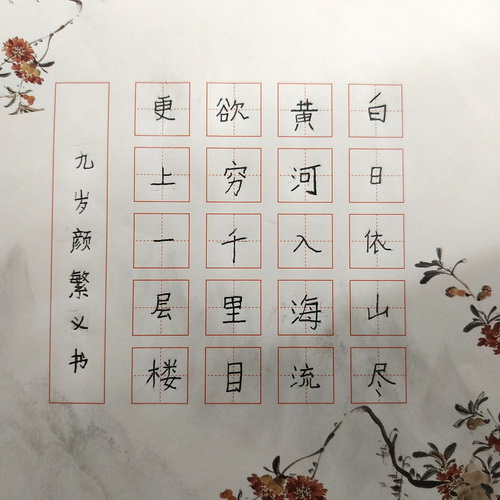 白日依山尽
黄河入海流
欲穷千里目
更上一层楼
九岁颜繁义书